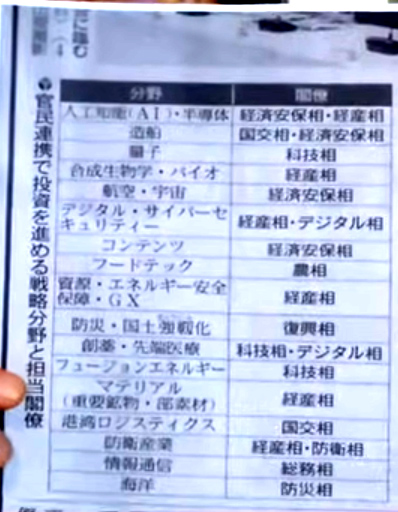 官民連携で投資を進める戦略分野と担当閣僚
分野 閣僚
人工知能(AI)・半導体 経済安保相・経産相
造船 国交相・経済安保相
量子 科技相
合成生物学・バイオ 経産相
航空・宇宙 経済安保相
デジタル・サイバーセ
キュリティー 経産相・デジタル相
コンテンツ 経済安保相
フードテック 農相
資源・エネルギー安全
保障・GX 経産相
防災・国土強靱化 復興相
創薬・先端医療 科技相・デジタル相
フュージョンエネルギー 科技相
マテリアル
(重要鉱物・部素材) 経産相
港湾ロジスティクス 国交相
防衛産業 経産相・防衛相
情報通信 総務相
海洋 防災相